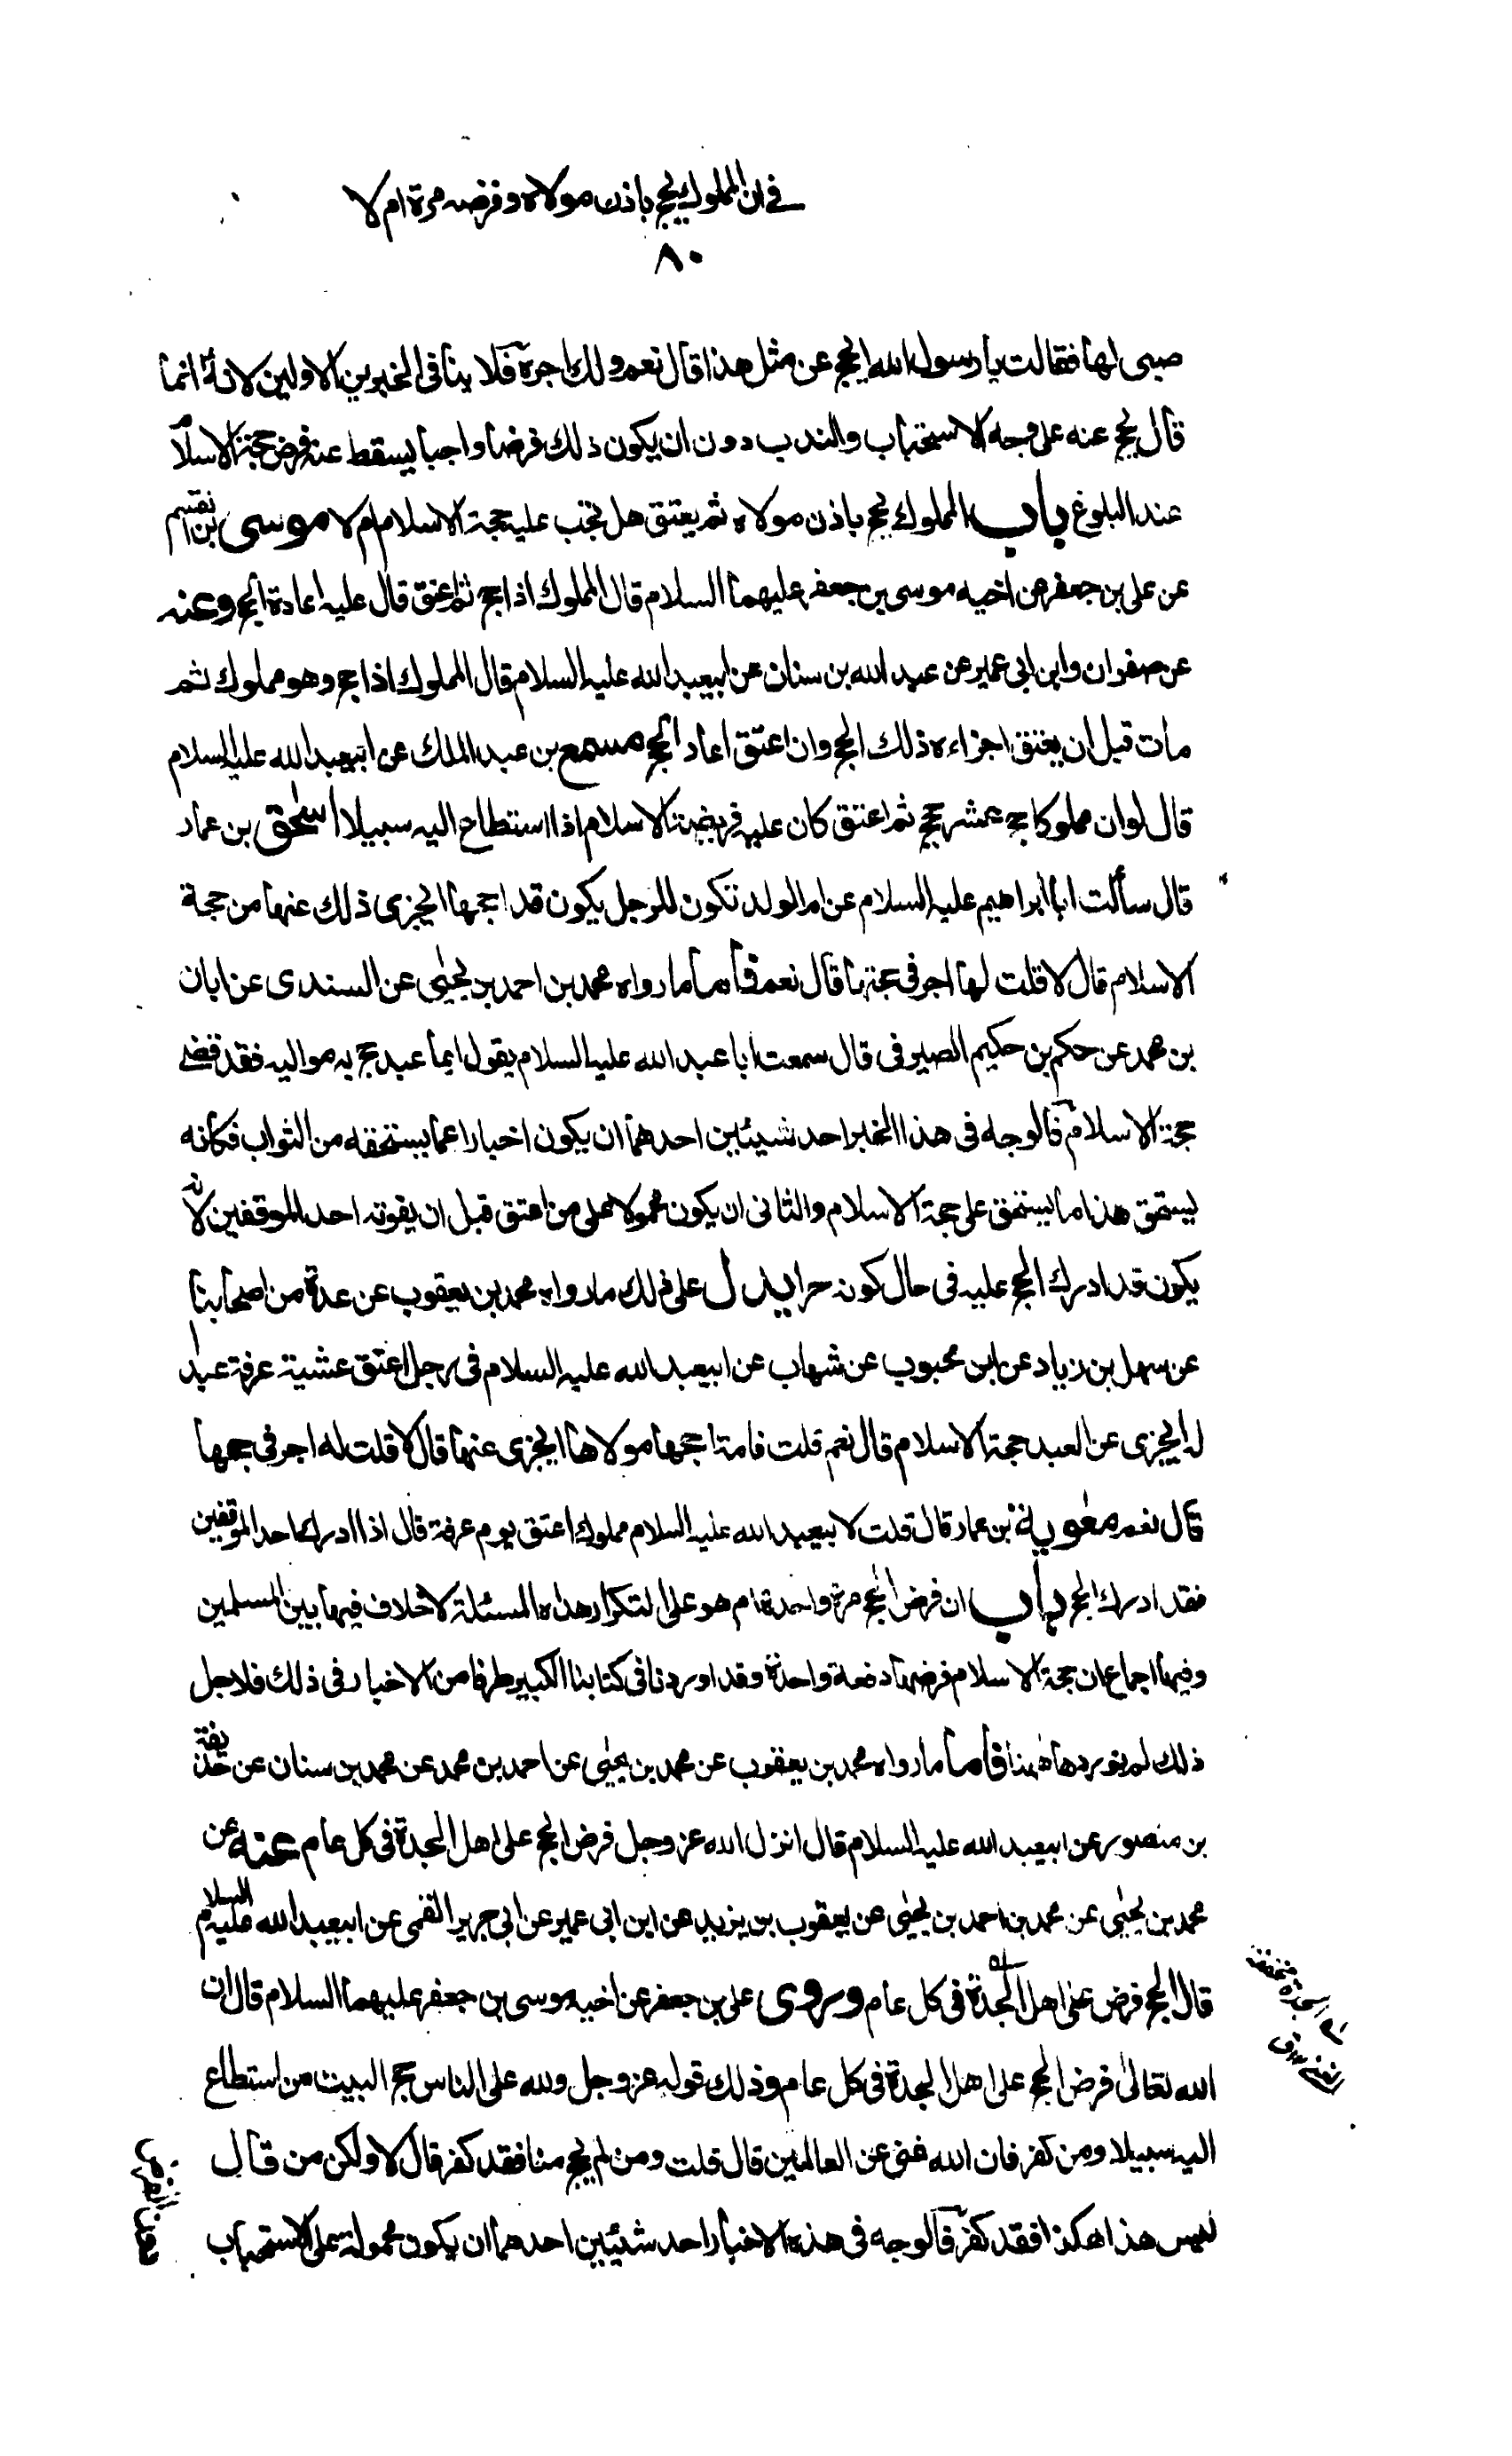 في ان المملوك يحج باذن مولاه وفرضه مرة ام لا
٨٠
صبى لها فقالت يا رسول الله ايحج عن مثل هذا قال نعم ولك اجره فلا ينافى الخبرين الاولين لانه انما
قال يحج عنه على وجه الاستحباب والندب دون ان يكون ذلك فرضا واجبا يسقط عنه فرض حجة الاسلام
عند البلوغ باب المملوك يحج باذن مولاه ثم يعتق هل تجب عليه حجة الاسلام ام لا موسى بن القسم
عن على بن جعفر عن اخيه موسى بن جعفر عليهما السلام قال المملوك اذا حج ثم اعتق قال عليه اعادة الحج وعنه
عن صفوان وابن ابى عمير عن عبد الله بن سنان عن ابيعبد الله عليه السلام قال المملوك اذا حج وهو مملوك ثم
مات قبل ان يعتق اجزاءه ذلك الحج وان اعتق اعاد الحج مسمع بن عبد الملك عن ابيعبد الله عليه السلام
قال لو ان مملوكا حج عشر حجج ثم اعتق كان عليه فريضة الاسلام اذا استطاع اليه سبيلا اسحق بن عمار
قال سألت ابا ابراهيم عليه السلام عن ام الولد تكون للرجل يكون قد احجها ايجزى ذلك عنها من حجة
الاسلام قال لا قلت لها اجر فى حجتها قال نعم فأما ما رواه محمد بن احمد بن يحيى عن السندى عن ابان
بن محمد عن حكم بن حكيم الصيرفى قال سمعت ابا عبد الله عليه السلام يقول ايما عبد حج به مواليه فقد قضى
حجة الاسلام فالوجه فى هذا الخبر احد شيئين احدهما ان يكون اخبارا عما يستحقه من الثواب فكأنه
يستحق هذا ما يستحق على حجة الاسلام والثانى ان يكون محمولا على من اعتق قبل ان يفوته احد الموقفين لانه
يكون قد ادرك الحج عليه فى حال كونه حرا يدل على ذلك ما رواه محمد بن يعقوب عن عدة من اصحابنا
عن سهل بن زياد عن ابن محبوب عن شهاب عن ابيعبد الله عليه السلام فى رجل اعتق عشية عرفة عبدا
له ايجزى عن العبد حجة الاسلام قال نعم قلت فامة احجها مولاها ايجزى عنها قال لا قلت له اجر فى حجها
قال نعم معوية بن عمار قال قلت لابيعبد الله عليه السلام مملوك اعتق يوم عرفة قال اذا ادرك احد الموقفين
فقد ادرك الحج باب ان فرض الحج مرة واحدة ام هو على التكرار هذه المسئلة لا خلاف فيها بين المسلمين
وفيها اجماع ان حجة الاسلام فرضها دفعة واحدة وقد اوردنا فى كتابنا الكبير طرفا من الاخبار فى ذلك فلاجل
ذلك لم نوردها هٰهنا فأما ما رواه محمد بن يعقوب عن محمد بن يحيى عن احمد بن محمد عن محمد بن سنان عن حذيفة
بن منصور عن ابيعبد الله عليه السلام قال انزل الله عز وجل فرض الحج على اهل الجدة فى كل عام عنه عن
محمد بن يحيى عن محمد بن احمد بن يحيى عن يعقوب بن يزيد عن ابن ابى عمير عن ابى جرير القمى عن ابيعبد الله عليه السلام
قال الحج فرض على اهل الجدة فى كل عام وروى على بن جعفر عن اخيه موسى بن جعفر عليهما السلام قال ان
الله تعالى فرض الحج على اهل الجدة فى كل عام وذلك قوله عز وجل ولله على الناس حج البيت من استطاع
اليه سبيلا ومن كفر فان الله غنى عن العالمين قال قلت ومن لم يحج منا فقد كفر قال لا ولكن من قال
ليس هذا هكذا فقد كفر فالوجه فى هذه الاخبار احد شيئين احدهما ان يكون محمولة على الاستحباب